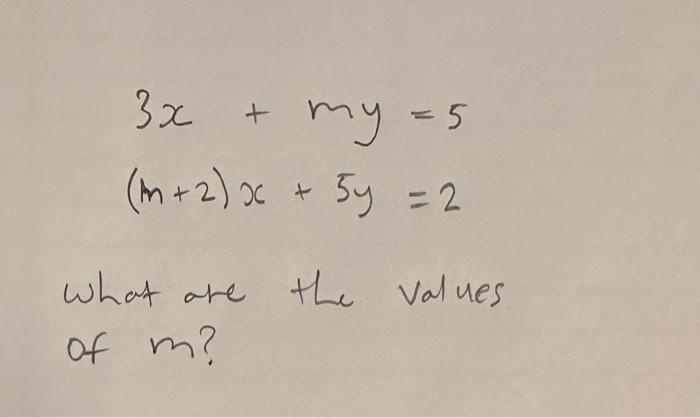 3x + my = 5
(m+2)x + 5y = 2
what are the values
of m?